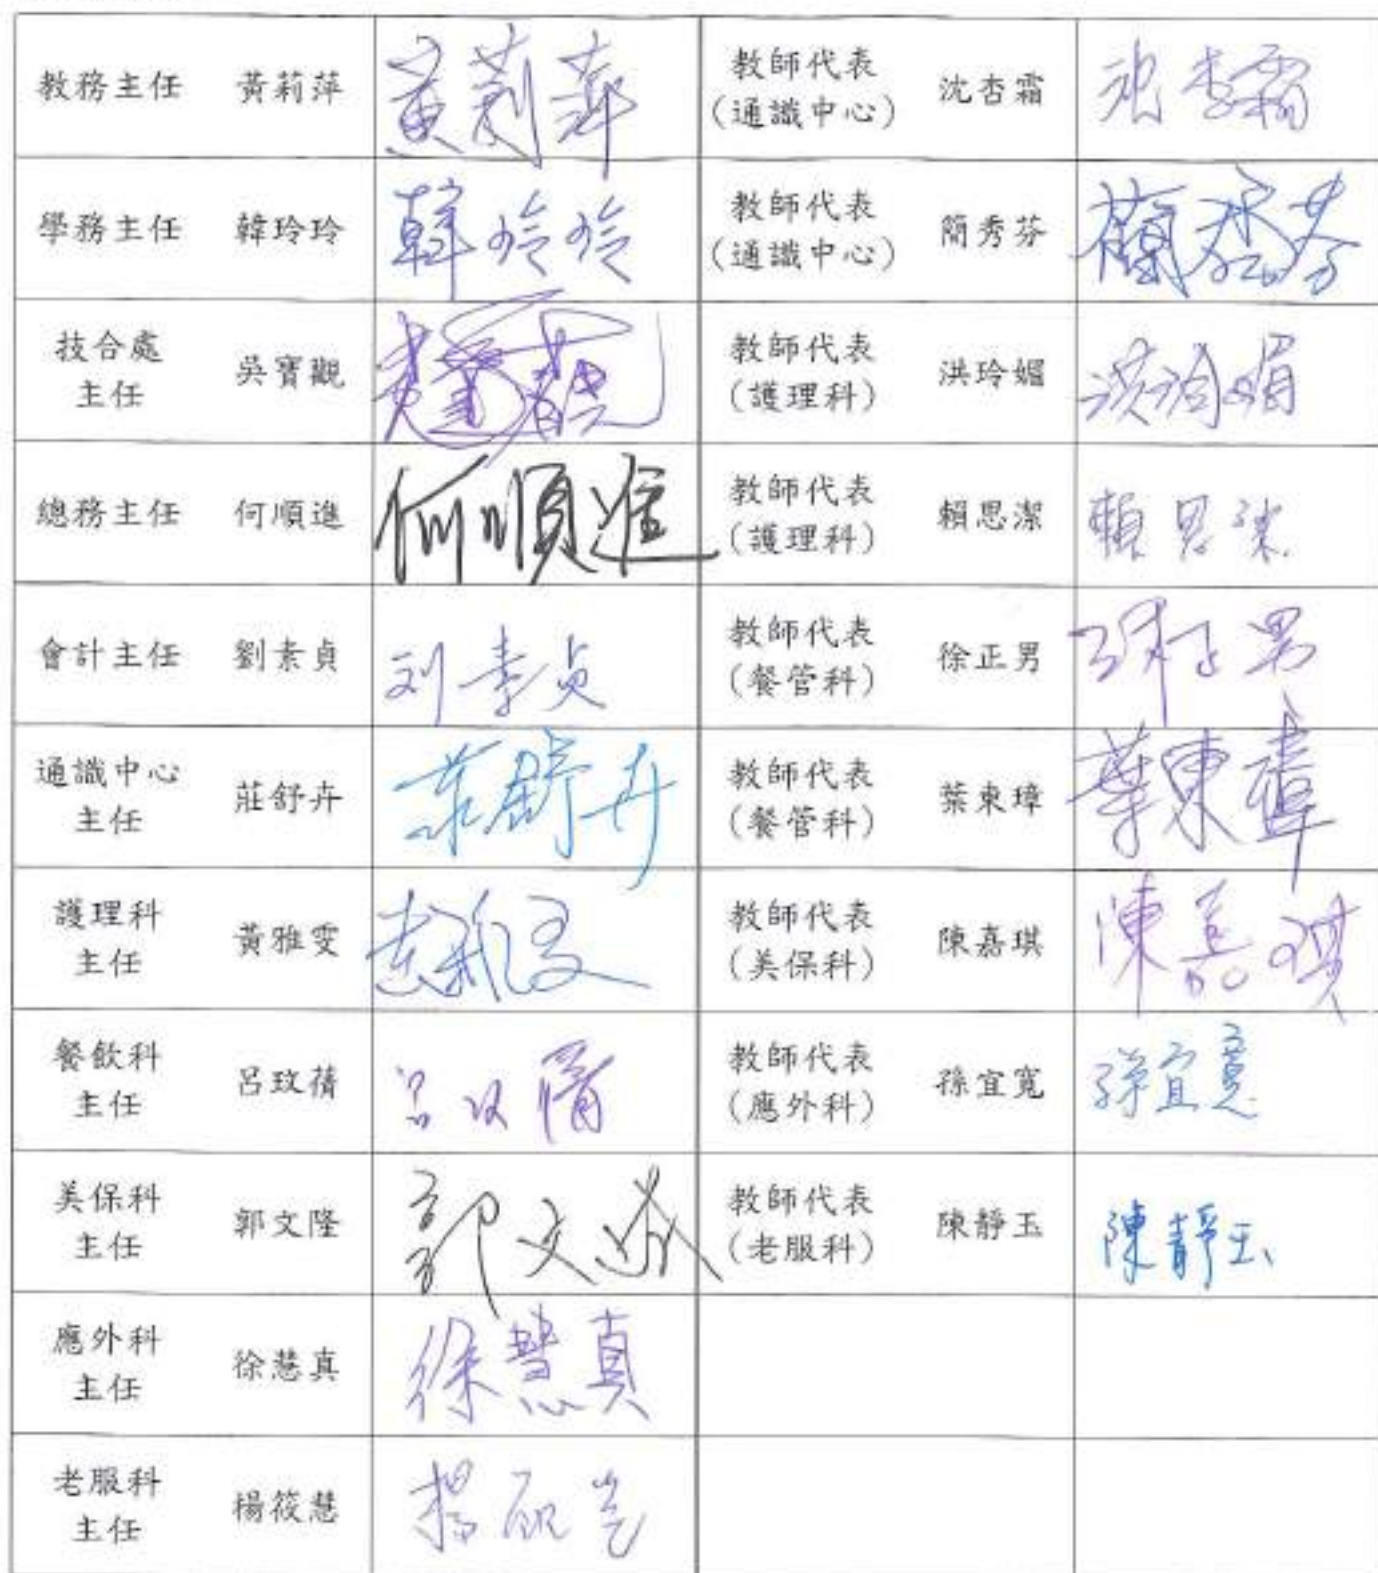 教務主任 黃莉萍 黃莉萍 教師代表 (通識中心) 沈杏霜 沈杏霜
學務主任 韓玲玲 韓玲玲 教師代表 (通識中心) 簡秀芬 簡秀芬
技合處 主任 吳寶觀 教師代表 (護理科) 洪玲媚 洪玲媚
總務主任 何順進 何順進 教師代表 (護理科) 賴思潔 賴思潔
會計主任 劉素貞 刘素貞 教師代表 (餐管科) 徐正男 徐正男
通識中心 主任 莊舒卉 莊舒卉 教師代表 (餐管科) 葉東璋 葉東璋
護理科 主任 黃雅雯 教師代表 (美保科) 陳嘉琪 陳嘉琪
餐飲科 主任 呂玟蒨 呂玟蒨 教師代表 (應外科) 孫宜寬 孫宜寬
美保科 主任 郭文隆 郭文隆 教師代表 (老服科) 陳靜玉 陳靜玉
應外科 主任 徐慧真 徐慧真
老服科 主任 楊筱慧